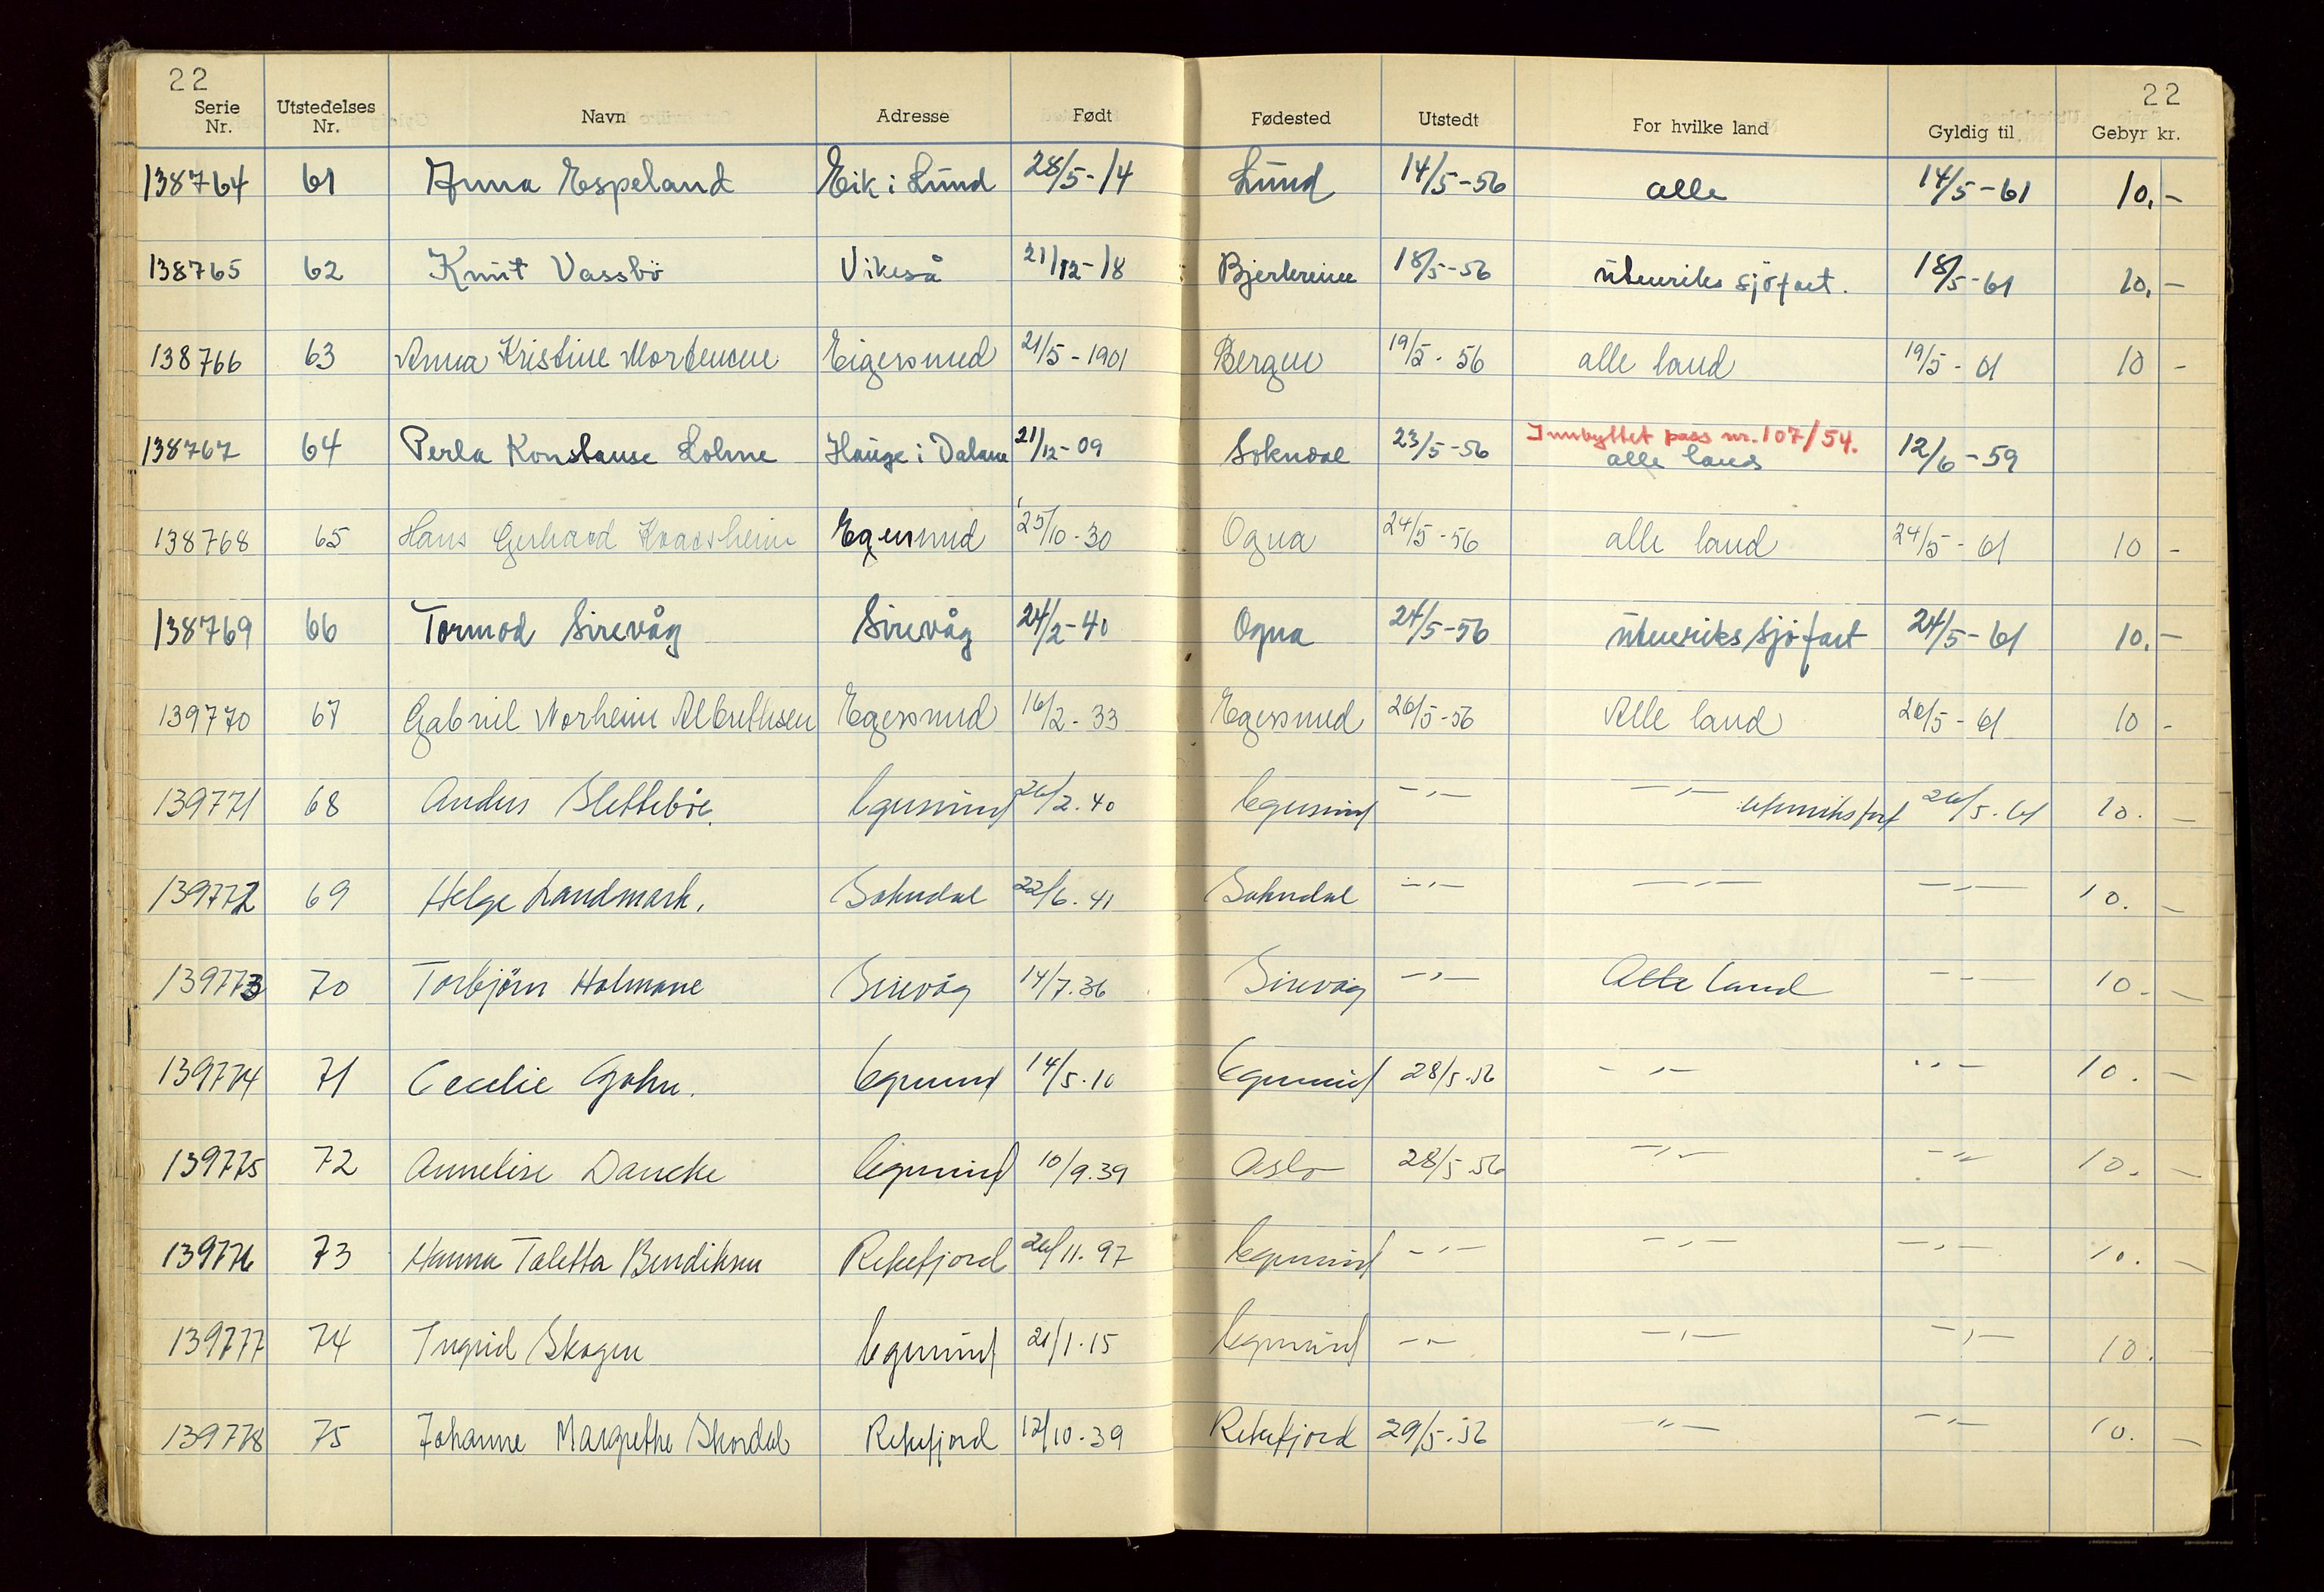 22 22
Serie Nr. Utstedelses Nr. Navn Adresse Født Fødested Utstedt For hvilke land Gyldig til Gebyr kr.
138764 61 Anna Espeland Eik i Lund 28/5-14 Lund 14/5-56 alle 14/5-61 10,-
138765 62 Knut Vassbö Vikeså 21/12-18 Bjerkreim 18/5-56 utenriks sjöfart. 18/5-61 10,-
138766 63 Anna Kristine Mortensen Eigersund 21/5-1901 Bergen 19/5-56 alle land 19/5-61 10 -
Innbyttet pass nr. 107/54.
138767 64 Perla Konstanse Lohne Hauge i Dalane 21/12-09 Sokndal 23/5-56 alle land 12/6-59
138768 65 Hans Gerhard Kvadsheim Egersund 25/10-30 Ogna 24/5-56 alle land 24/5-61 10 -
138769 66 Tormod Sirevåg Sirevåg 24/2-40 Ogna 24/5-56 utenriks sjöfart 24/5-61 10.-
139770 67 Gabriel Norheim Albrethsen Egersund 16/2-33 Egersund 26/5-56 Alle land 26/5-61 10 -
139771 68 Anders Sletteböe. Egersund 26/2.40 Egersund -"- -"- utenriksfart 26/5.61 10. -
139772 69 Helge Landmark. Sokndal 22/6.41 Sokndal -"- -"- -"- 10. -
139773 70 Torbjörn Holmane Sirevåg 14/7.36 Sirevåg -"- Alle land -"- 10. -
139774 71 Cecilie Gohn. Egersund 14/5.10 Egersund 28/5.56 -"- -"- 10. -
139775 72 Annelise Dancke Egersund 10/9.39 Oslo 28/5.56 -"- -"- 10. -
139776 73 Hanna Taletta Bendiksen Rekefjord 26/11.97 Egersund -"- -"- -"- 10. -
139777 74 Ingrid Skogen Egersund 21/1.15 Egersund -"- -"- -"- 10. -
139778 75 Johanne Margrethe Skordal Rekefjord 12/10.39 Rekefjord 29/5.56 -"- -"- 10. -